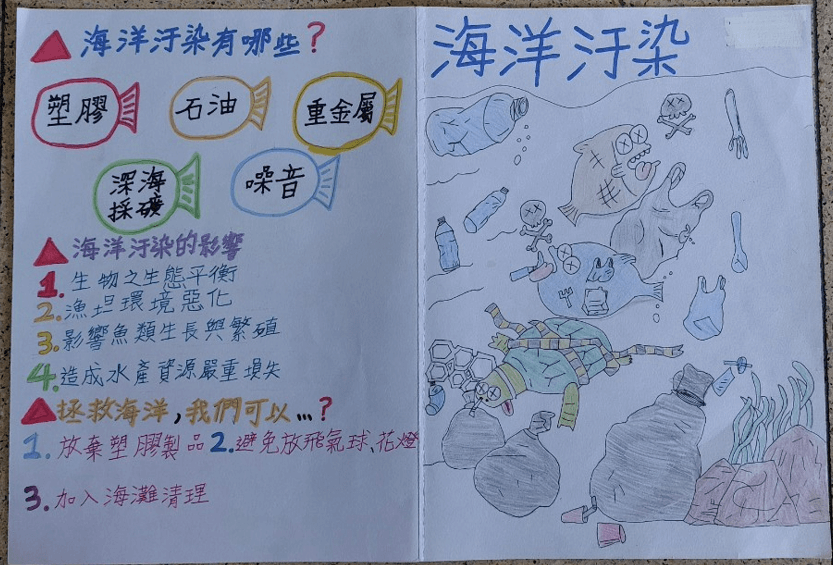 海洋汙染有哪些？
塑膠 石油 重金屬
深海採礦 噪音
海洋汙染的影響
1. 生物之生態平衡
2. 漁坦環境惡化
3. 影響魚類生長與繁殖
4. 造成水產資源嚴重損失
拯救海洋，我們可以...？
1. 放棄塑膠製品 2. 避免放飛氣球、花燈
3. 加入海灘清理
海洋汙染